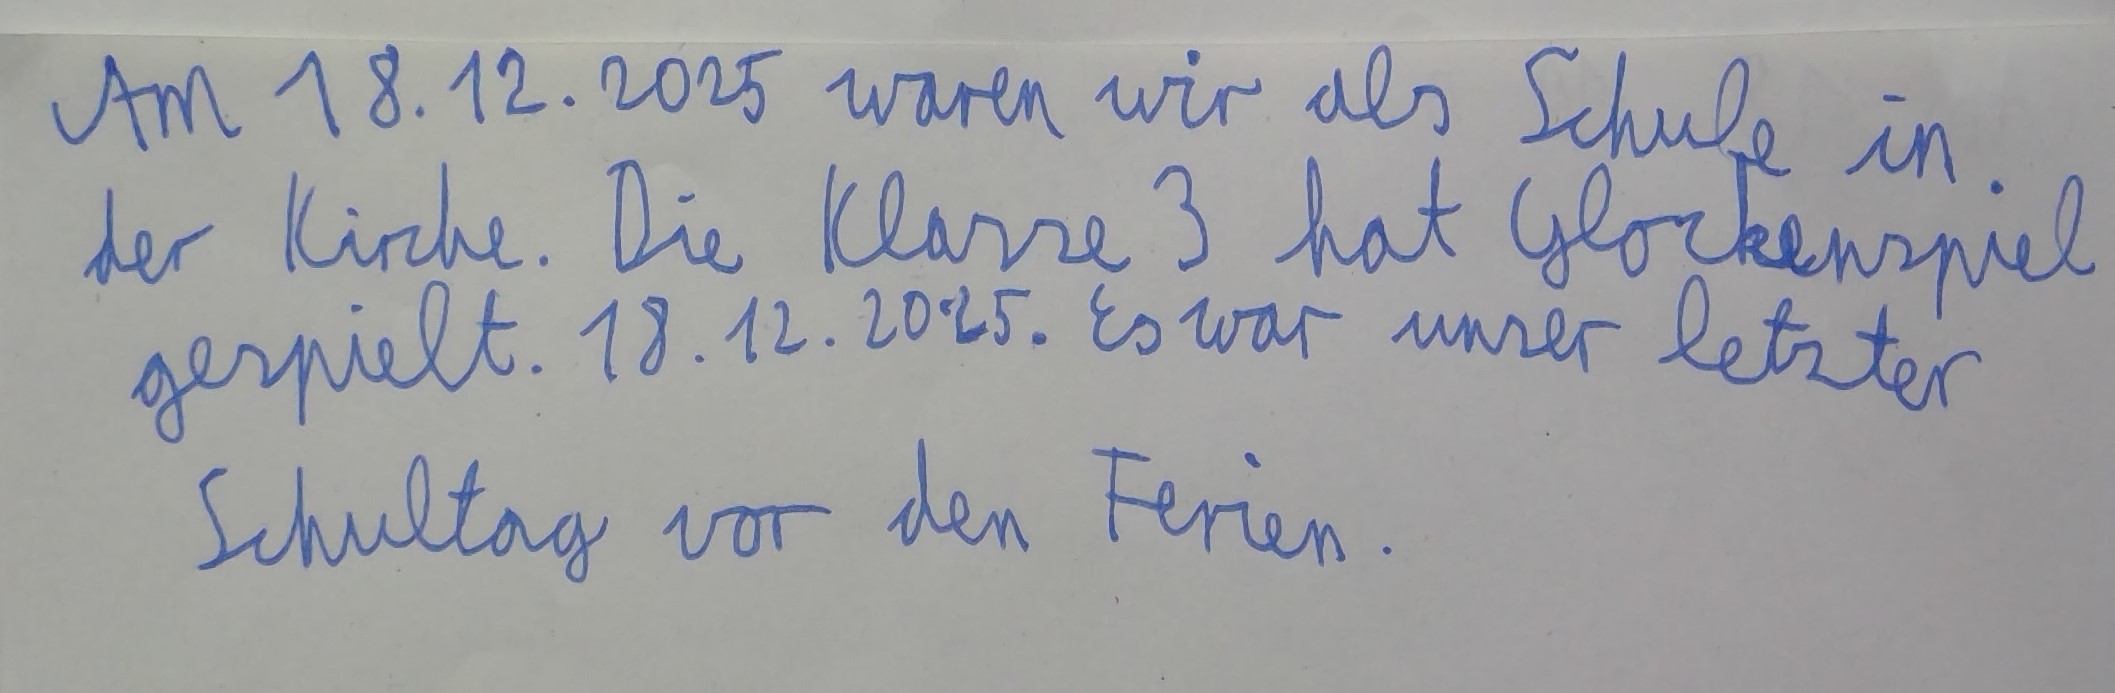 Am 18.12.2025 waren wir als Schule in
der Kirche. Die Klasse 3 hat Glockenspiel
gespielt. 18.12.2025. Es war unser letzter
Schultag vor den Ferien.